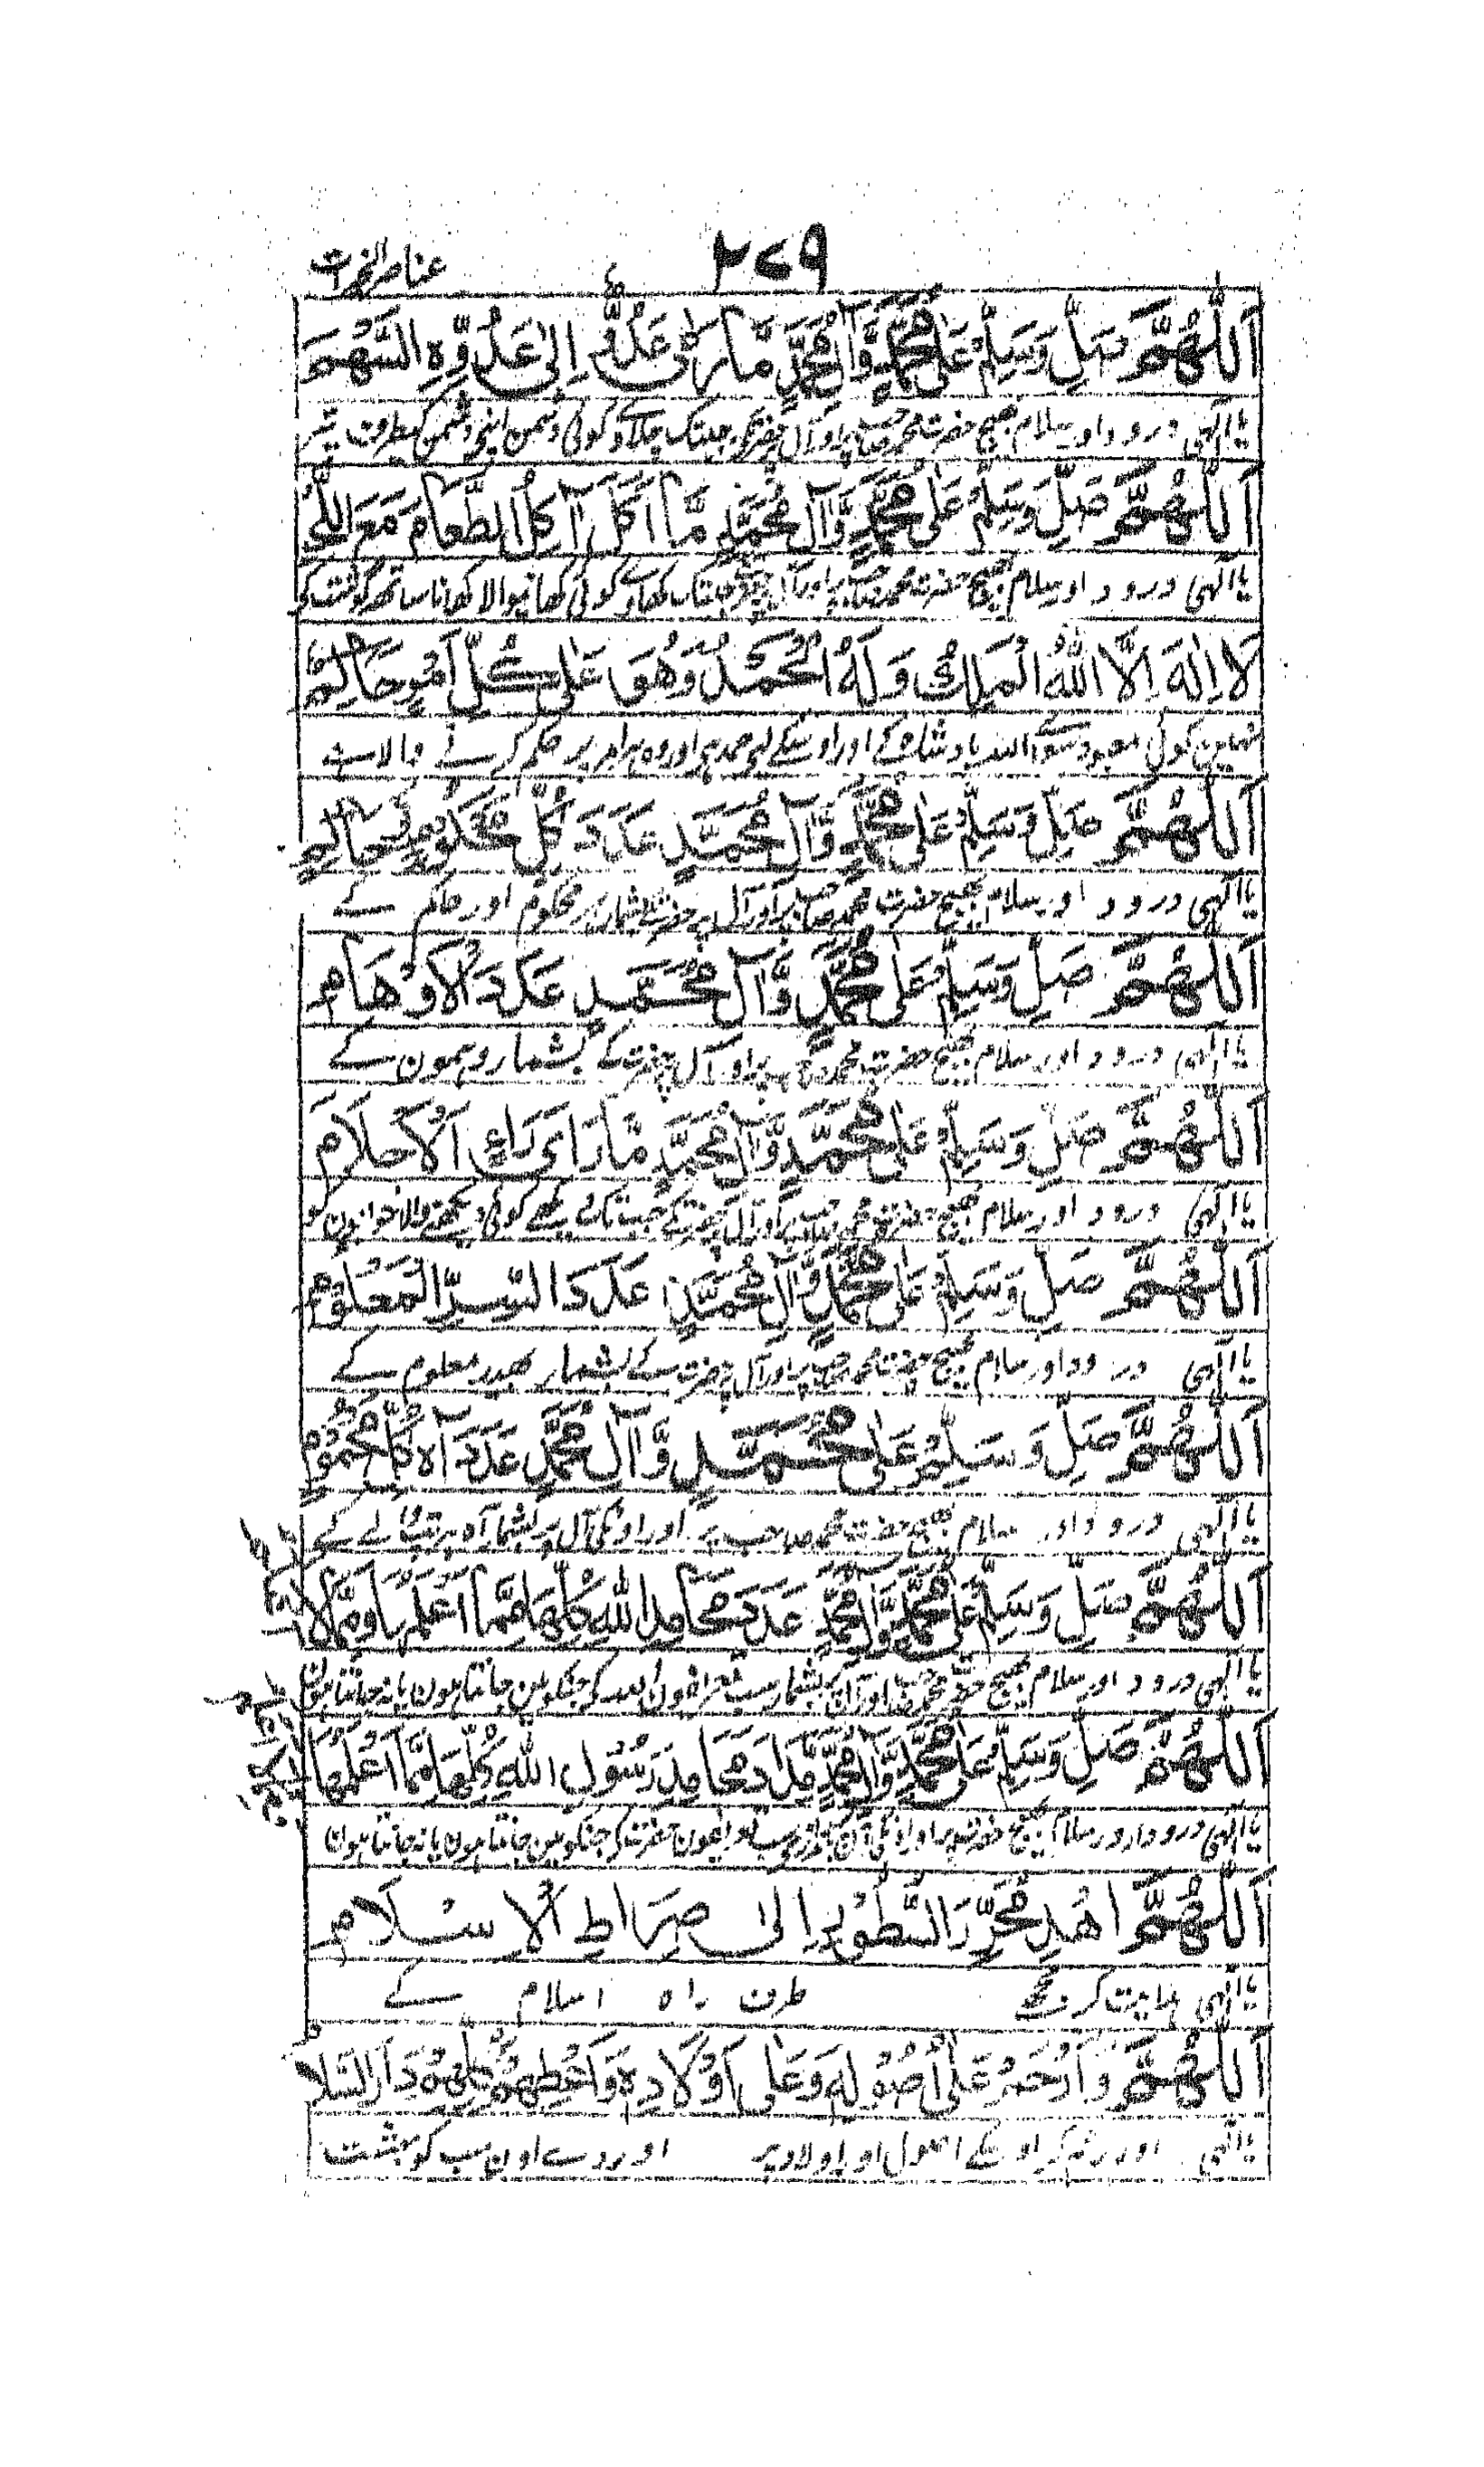 عناصر الخیرات ۲۷۹
اَللّٰهُمَّ صَلِّ وَسَلِّمْ عَلٰی مُحَمَّدٍ وَّاٰلِ مُحَمَّدٍ مَّا رَمٰی عَدُوٌّ اِلٰی عَدُوِّهِ السَّهْمَ
یا الٰہی درود اور سلام بھیج حضرت محمد صاحب پر اور آل پر حضرت کے جبتک چلاوے کوئی دشمن اپنی دشمن کیطرف تیر
اَللّٰهُمَّ صَلِّ وَسَلِّمْ عَلٰی مُحَمَّدٍ وَّاٰلِ مُحَمَّدٍ مَّا اَكَلَ اٰكِلُ الطَّعَامِ مَعَ اللَّحْمِ
یا الٰہی درود اور سلام بھیج حضرت محمد صاحب پر اور آل پر حضرت کے جبتک کھاوے کوئی کھانیوالا کھانا ساتھ گوشت کو
لَا اِلٰهَ اِلَّا اللّٰهُ الْمَلِكُ وَلَهُ الْحَمْدُ وَهُوَ عَلٰی كُلِّ اَمْرٍ حَاكِمٌ
نہیں کوئی معبود سوا اللہ بادشاہ کے اور اوسکے لیے حمد ہی اور وہ ہر امر پر حکم کرنے والا ہے
اَللّٰهُمَّ صَلِّ وَسَلِّمْ عَلٰی مُحَمَّدٍ وَّاٰلِ مُحَمَّدٍ عَدَدَ كُلِّ مَحْكُوْمٍ وَّحَاكِمٍ
یا الٰہی درود اور سلام بھیج حضرت محمد صاحب پر اور آل پر حضرت کے بشمار ہر محکوم اور حاکم کے
اَللّٰهُمَّ صَلِّ وَسَلِّمْ عَلٰی مُحَمَّدٍ وَّاٰلِ مُحَمَّدٍ عَدَدَ الْاَوْهَامِ
یا الٰہی درود اور سلام بھیج حضرت محمد صاحب پر اور آل پر حضرت کے بشمار وہمون کے
اَللّٰهُمَّ صَلِّ وَسَلِّمْ عَلٰی مُحَمَّدٍ وَّاٰلِ مُحَمَّدٍ مَّا رَاٰی رَاءٍ اَلْاَحْلَامَ
یا الٰہی درود اور سلام بھیج حضرت محمد صاحب پر اور آل پر حضرت کے جب تک دیکھے کوئی دیکھنے والا خوابون کو
اَللّٰهُمَّ صَلِّ وَسَلِّمْ عَلٰی مُحَمَّدٍ وَّاٰلِ مُحَمَّدٍ عَدَدَ السِّرِّ الْمَعْلُوْمِ
یا الٰہی درود اور سلام بھیج حضرت محمد صاحب پر اور آل پر حضرت کے بشمار بھید معلوم کے
اَللّٰهُمَّ صَلِّ وَسَلِّمْ عَلٰی مُحَمَّدٍ وَّاٰلِ مُحَمَّدٍ عَدَدَ اٰهِ كُلِّ مَحْمُوْمٍ
یا الٰہی درود اور سلام بھیج حضرت محمد صاحب پر اور اونکی آل پر بشمار آہ ہر تپ والے کے
اَللّٰهُمَّ صَلِّ وَسَلِّمْ عَلٰی مُحَمَّدٍ وَّاٰلِ مُحَمَّدٍ عَدَدَ مَحَامِدِ اللّٰهِ كُلِّهَا مِمَّا اَعْلَمُهَا وَمِمَّا لَا
یا الٰہی درود اور سلام بھیج حضرت محمد صاحب اور آل پر بشمار سب تعریفون اللہ کو جنکو مین جانتا ہون یا نہ جانتا ہون
اَللّٰهُمَّ صَلِّ وَسَلِّمْ عَلٰی مُحَمَّدٍ وَّاٰلِ مُحَمَّدٍ عَدَدَ مَحَامِدِ رَسُوْلِ اللّٰهِ كُلِّهَا مِمَّا اَعْلَمُهَا
یا الٰہی درود اور سلام بھیج حضرت پر اور اونکی آل پر سب تعریفون حضرت کو جنکو مین جانتا ہون یا نہ جانتا ہون
اَللّٰهُمَّ اهْدِ مُحَرِّرَ السُّطُوْرِ اِلٰی صِرَاطِ الْاِسْلَامِ
یا الٰہی ہدایت کر مجھے طرف راہ اسلام کے
اَللّٰهُمَّ وَارْحَمْ عَلٰی اُصُوْلِهٖ وَعَلٰی اَوْلَادِهٖ وَاَعْطِهِمْ كُلَّهُمْ دَارَ السَّلَامِ
یا الٰہی اور رحم کر اوسکے اصول اور اولاد پر اور دے اون سب کو بہشت